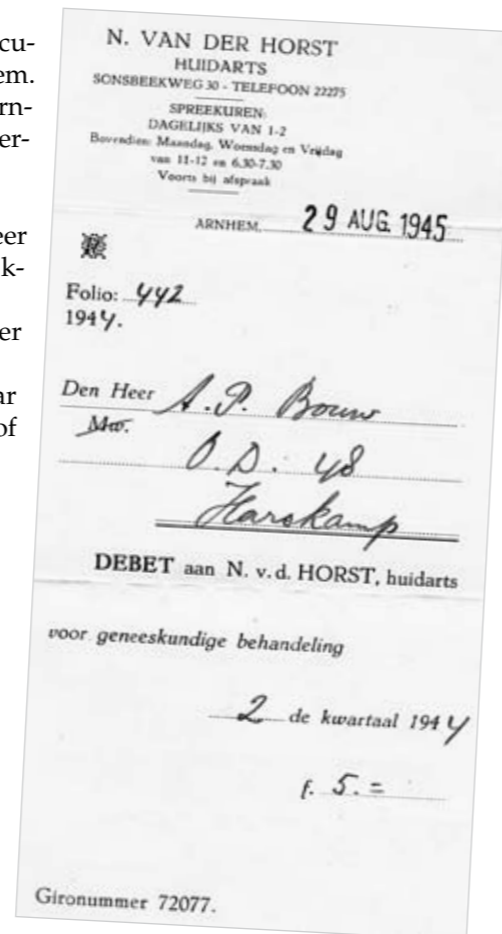 cu-
em.
rn-
er-
eer
k-
er
ar
of
N. VAN DER HORST
HUIDARTS
SONSBEEKWEG 30 - TELEFOON 22275
SPREEKUREN:
DAGELIJKS VAN 1-2
Bovendien: Maandag, Woensdag en Vrijdag
van 11-12 en 6.30-7.30
Voorts bij afspraak
ARNHEM, 29 AUG. 1945
Folio: 442
1944.
Den Heer A. P. Bouw
Mw.
O. D. 48
Harskamp
DEBET aan N. v. d. HORST, huidarts
voor geneeskundige behandeling
2 de kwartaal 1944
f. 5. =
Gironummer 72077.